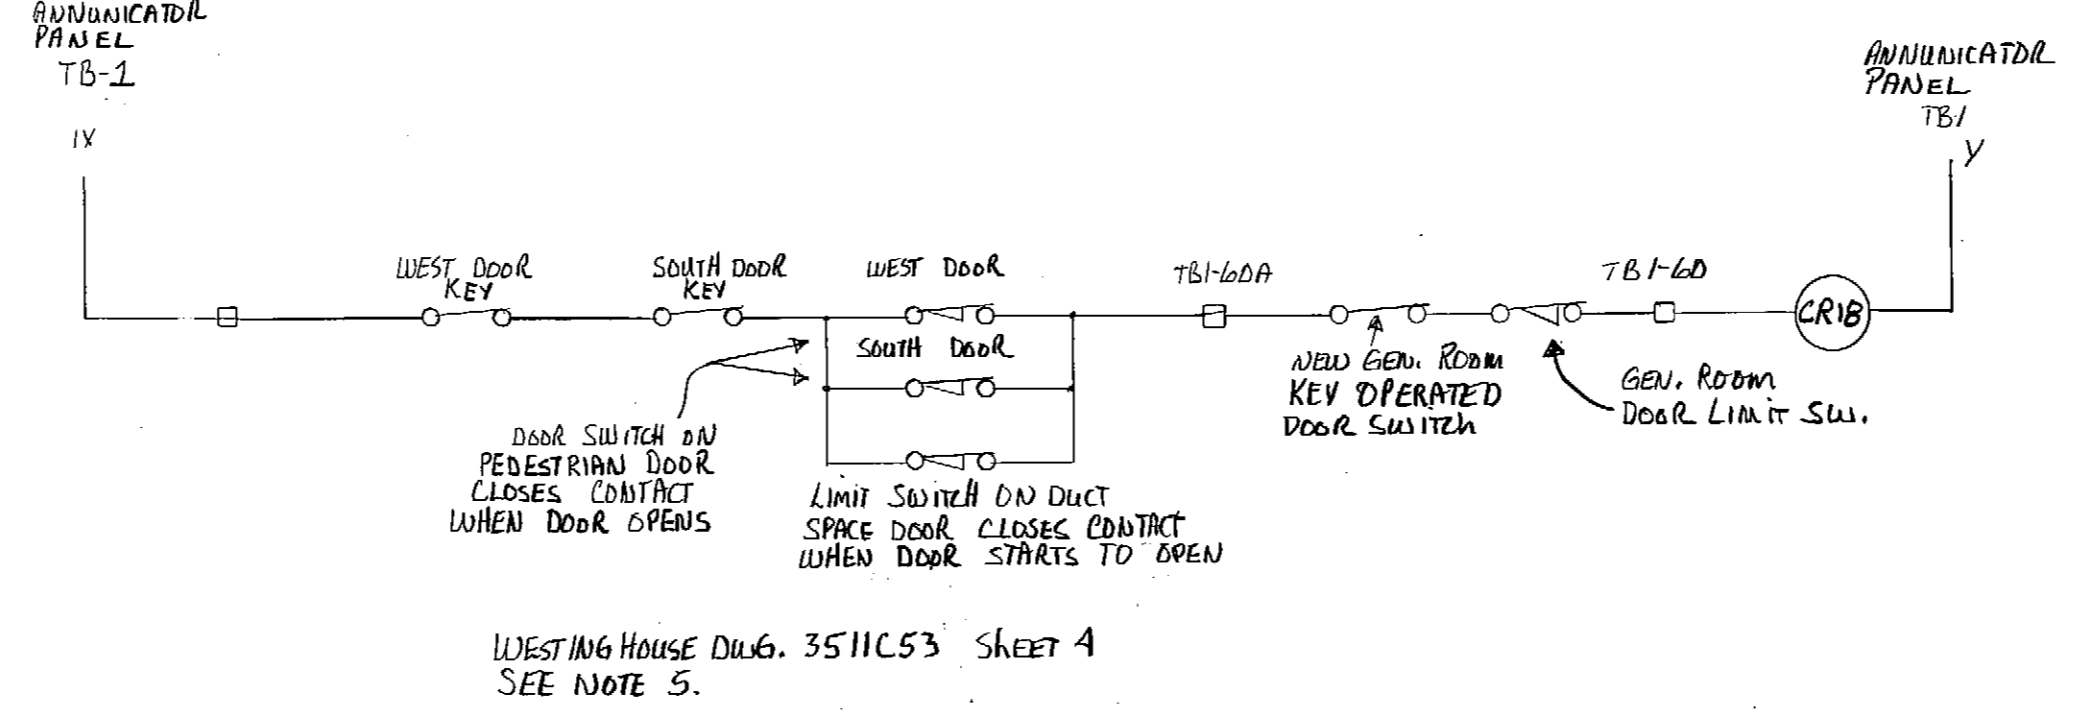 ANNUNICATOR
PANEL
TB-1
1X
ANNUNICATOR
PANEL
TB-1
Y
WEST DOOR
KEY
SOUTH DOOR
KEY
WEST DOOR
TB1-6DA
TB1-6D
CR1B
SOUTH DOOR
NEW GEN. ROOM
KEY OPERATED
DOOR SWITCH
GEN. ROOM
DOOR LIMIT SW.
DOOR SWITCH ON
PEDESTRIAN DOOR
CLOSES CONTACT
WHEN DOOR OPENS
LIMIT SWITCH ON DUCT
SPACE DOOR CLOSES CONTACT
WHEN DOOR STARTS TO OPEN
WESTINGHOUSE DWG. 3511C53 SHEET 4
SEE NOTE 5.